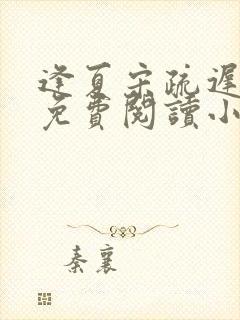 逢夏宋疏遲
免費閱讀小
秦襄